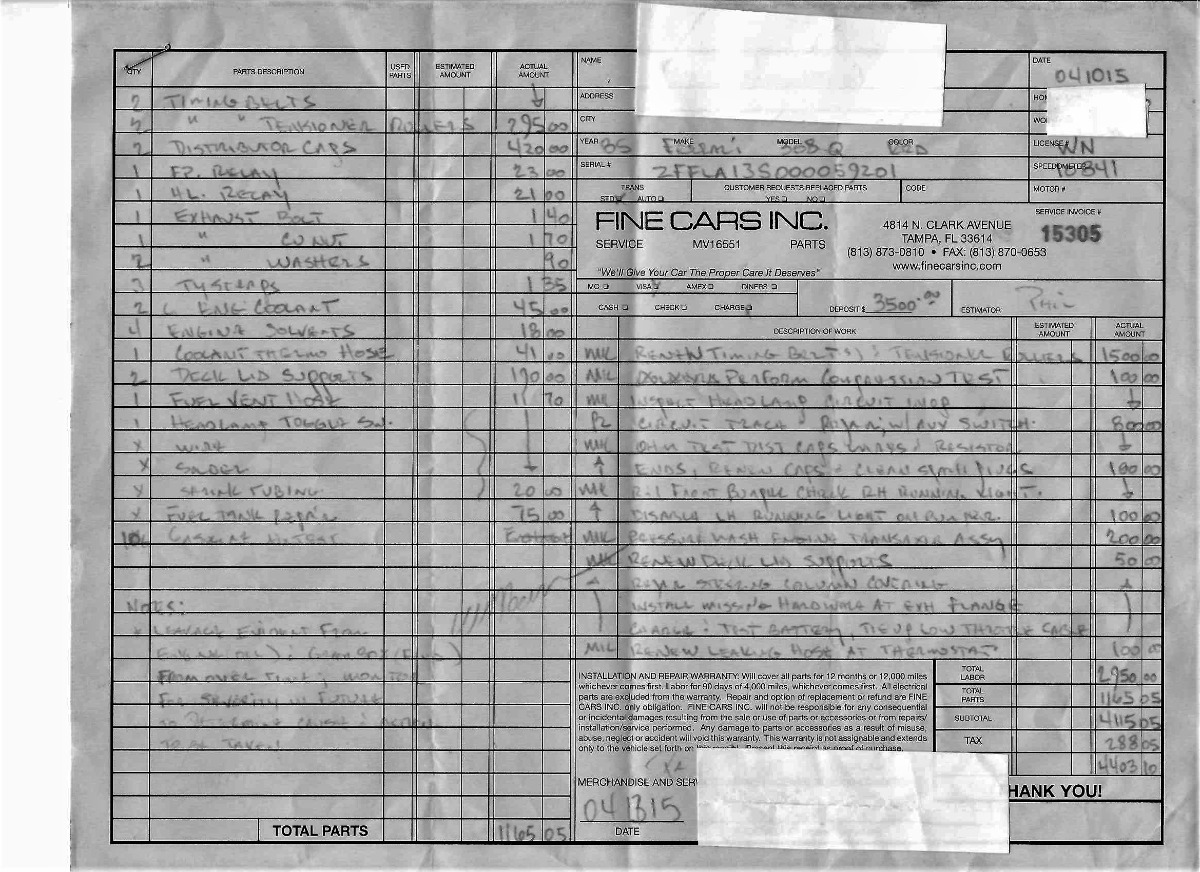 QTY PARTS DESCRIPTION USED PARTS ESTIMATED AMOUNT ACTUAL AMOUNT
2 TIMING BELTS
2 " " TENSIONER ROLLERS 295 00
2 DISTRIBUTOR CAPS 420 00
1 F.P. RELAY 23 00
1 H.L. RELAY 21 00
1 EXHAUST BOLT 1 40
1 " CU NUT 1 70
2 " WASHERS 90
3 TY STRAPS 1 35
2 L ENG COOLANT 45 00
4 ENGINE SOLVENTS 18 00
1 COOLANT THERMO HOSE 41 00
2 DECK LID SUPPORTS 190 00
1 FUEL VENT HOSE 11 70
1 HEADLAMP TOGGLE SW.
X WIRE
X SOLDER
X SHRINK TUBING 20 00
X FUEL TANK REPAIR 75 00
NOTES:
* LEAKAGE EVIDENT FROM
ENGINE (OIL) &
FROM OVER TIME; MONITOR
FOR SEVERITY IN FUTURE
TO BE TAKEN
TOTAL PARTS 1165 05
NAME
ADDRESS
CITY
YEAR 85 MAKE Ferrari MODEL 308 Q COLOR RED
SERIAL # ZFFLA13S000059201
TRANS STD AUTO
CUSTOMER REQUESTS REPLACED PARTS YES NO
CODE
DATE 041015
LICENSE # WN
SPEEDOMETER 10841
MOTOR #
FINE CARS INC.
SERVICE MV16551 PARTS
"We'll Give Your Car The Proper Care It Deserves"
4814 N. CLARK AVENUE
TAMPA, FL 33614
(813) 873-0810 • FAX: (813) 870-0653
www.finecarsinc.com
SERVICE INVOICE #
15305
MC VISA AMEX DINERS
CASH CHECK CHARGE
DEPOSIT $ 3500.00 ESTIMATOR Phil
DESCRIPTION OF WORK ESTIMATED AMOUNT ACTUAL AMOUNT
RENEW TIMING BELT(S) & TENSIONER ROLLERS 1500 00
PERFORM COMPRESSION TEST 100 00
INSPECT HEADLAMP CIRCUIT INOP
CIRCUIT TRACE & REPAIR, W/ AUX SWITCH. 800 00
OHM TEST DIST CAPS WIRES & RESISTOR
ENDS, RENEW CAPS & CLEAN SPARK PLUGS 100 00
R&I FRONT BUMPER CHECK RH RUNNING LIGHT.
DISABLE LH RUNNING LIGHT ON BUMPER. 100 00
PRESSURE WASH ENGINE TRANSAXLE ASSY 200 00
RENEW DECK LID SUPPORTS 50 00
REPAIR STEERING COLUMN COVERING
INSTALL MISSING HARDWARE AT EXH FLANGE
CHARGE & TEST BATTERY, TIE UP LOW THROTTLE CABLE
RENEW LEAKING HOSE AT THERMOSTAT 100 00
INSTALLATION AND REPAIR WARRANTY: Will cover all parts for 12 months or 12,000 miles
whichever comes first. Labor for 90 days of 4,000 miles, whichever comes first. All electrical
parts are excluded from the warranty. Repair and option of replacement or refund are FINE
CARS INC. only obligation. FINE CARS INC. will not be responsible for any consequential
or incidental damages resulting from the sale or use of parts or accessories or from repairs/
installation/service performed. Any damage to parts or accessories as a result of misuse,
abuse, neglect or accident will void this warranty. This warranty is not assignable and extends
only to the vehicle set forth on
TOTAL LABOR 2950 00
TOTAL PARTS 1165 05
SUBTOTAL 4115 05
TAX 288 05
4403 10
MERCHANDISE AND SERV
041315
DATE
HANK YOU!